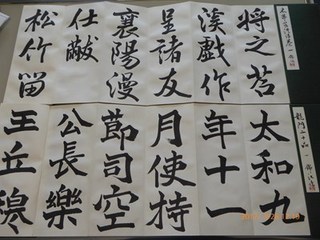 将之苕
溪戯作
呈諸友
襄陽漫
仕黻
松竹留
龍門二十品 一
太和九
年十一
月使持
節司空
公長樂
王丘穆